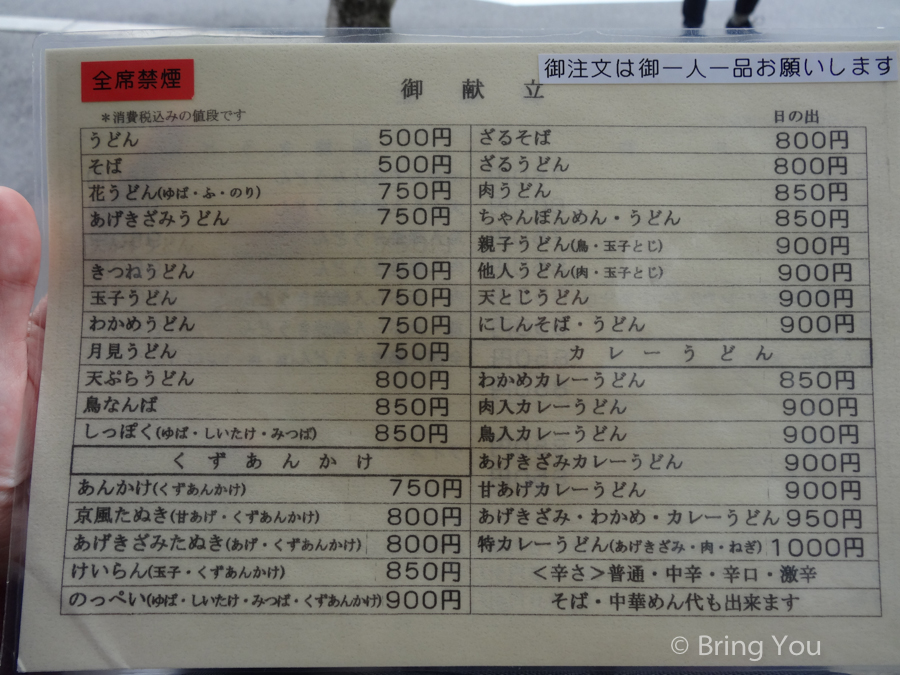 全席禁煙
御注文は御一人一品お願いします
御献立
＊消費税込みの値段です
日の出
うどん 500円
そば 500円
花うどん(ゆば・ふ・のり) 750円
あげきざみうどん 750円
きつねうどん 750円
玉子うどん 750円
わかめうどん 750円
月見うどん 750円
天ぷらうどん 800円
鳥なんば 850円
しっぽく(ゆば・しいたけ・みつば) 850円
くずあんかけ
あんかけ(くずあんかけ) 750円
京風たぬき(甘あげ・くずあんかけ) 800円
あげきざみたぬき(あげ・くずあんかけ) 800円
けいらん(玉子・くずあんかけ) 850円
のっぺい(ゆば・しいたけ・みつば・くずあんかけ) 900円
ざるそば 800円
ざるうどん 800円
肉うどん 850円
ちゃんぽんめん・うどん 850円
親子うどん(鳥・玉子とじ) 900円
他人うどん(肉・玉子とじ) 900円
天とじうどん 900円
にしんそば・うどん 900円
カレーうどん
わかめカレーうどん 850円
肉入カレーうどん 900円
鳥入カレーうどん 900円
あげきざみカレーうどん 900円
甘あげカレーうどん 900円
あげきざみ・わかめ・カレーうどん 950円
特カレーうどん(あげきざみ・肉・ねぎ) 1000円
＜辛さ＞普通・中辛・辛口・激辛
そば・中華めん代も出来ます
© Bring You